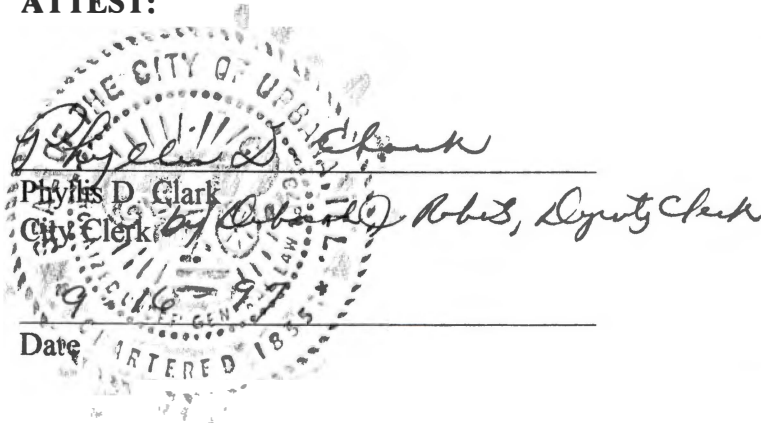 ATTEST:
THE CITY OF URBANA
Phyllis D. Clark
Phyllis D. Clark
City Clerk by Deborah J. Roberts, Deputy Clerk
9-16-97
Date
CHARTERED 1855